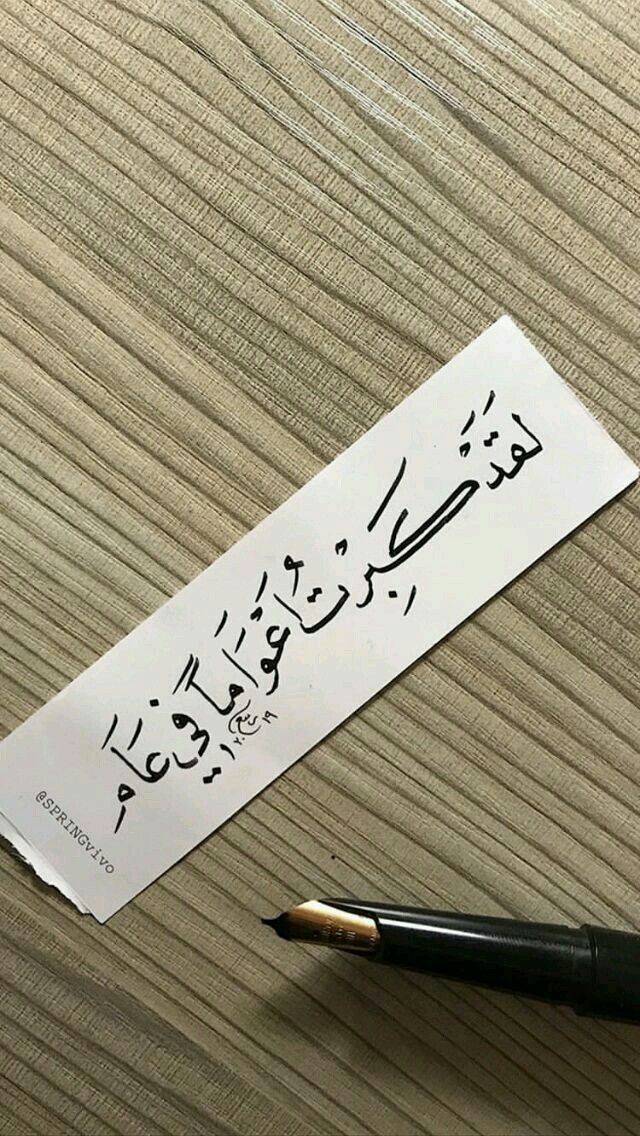 لَقَدْ كَبِرْتُ أَعْوَامًا فِي عَامْ
ربيع
@SPRINGvivo